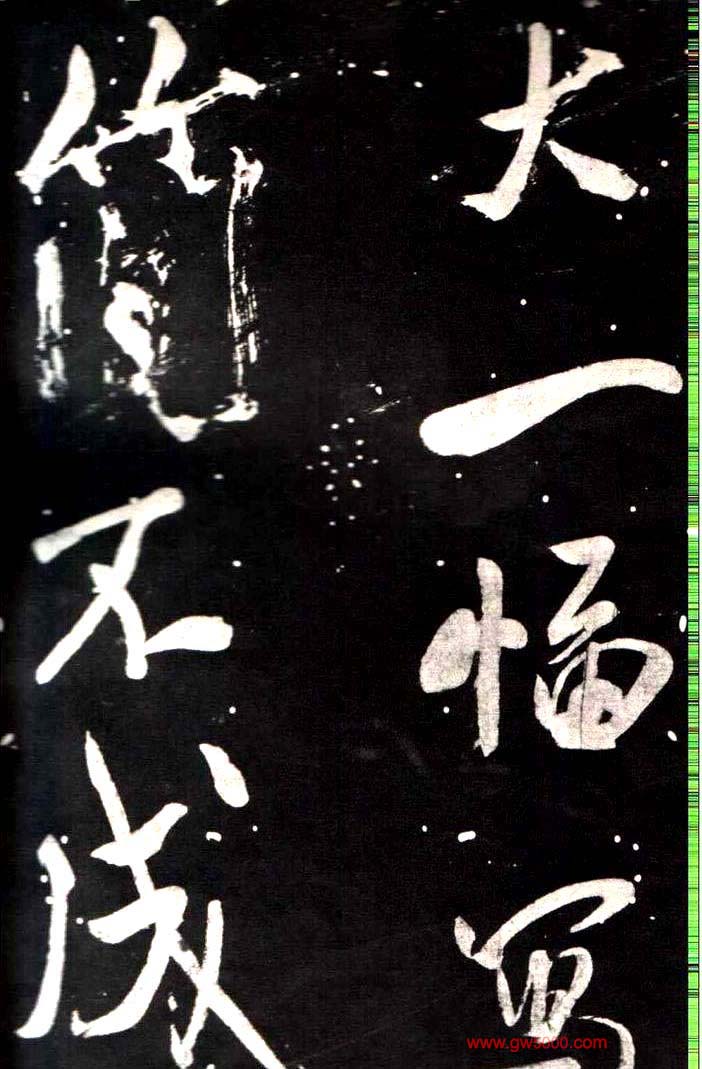 大一幅寫
筒不成
www.gw5000.com